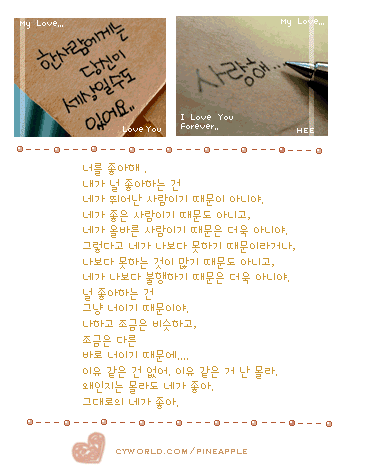 My Love,,,
한사람에게는
당신이
세상일수도
있어요..
Love You
My Love,,,
사랑해...
I Love You
Forever..
HEE
너를 좋아해 .
내가 널 좋아하는 건
네가 뛰어난 사람이기 때문이 아니야.
네가 좋은 사람이기 때문도 아니고,
네가 올바른 사람이기 때문은 더욱 아니야.
그렇다고 네가 나보다 못하기 때문이라거나,
나보다 못하는 것이 많기 때문도 아니고,
네가 나보다 불행하기 때문은 더욱 아니야.
널 좋아하는 건
그냥 너이기 때문이야.
나하고 조금은 비슷하고,
조금은 다른
바로 너이기 때문에....
이유 같은 건 없어. 이유 같은 거 난 몰라.
왜인지는 몰라도 네가 좋아.
그대로의 네가 좋아.
CYWORLD.COM/PINEAPPLE